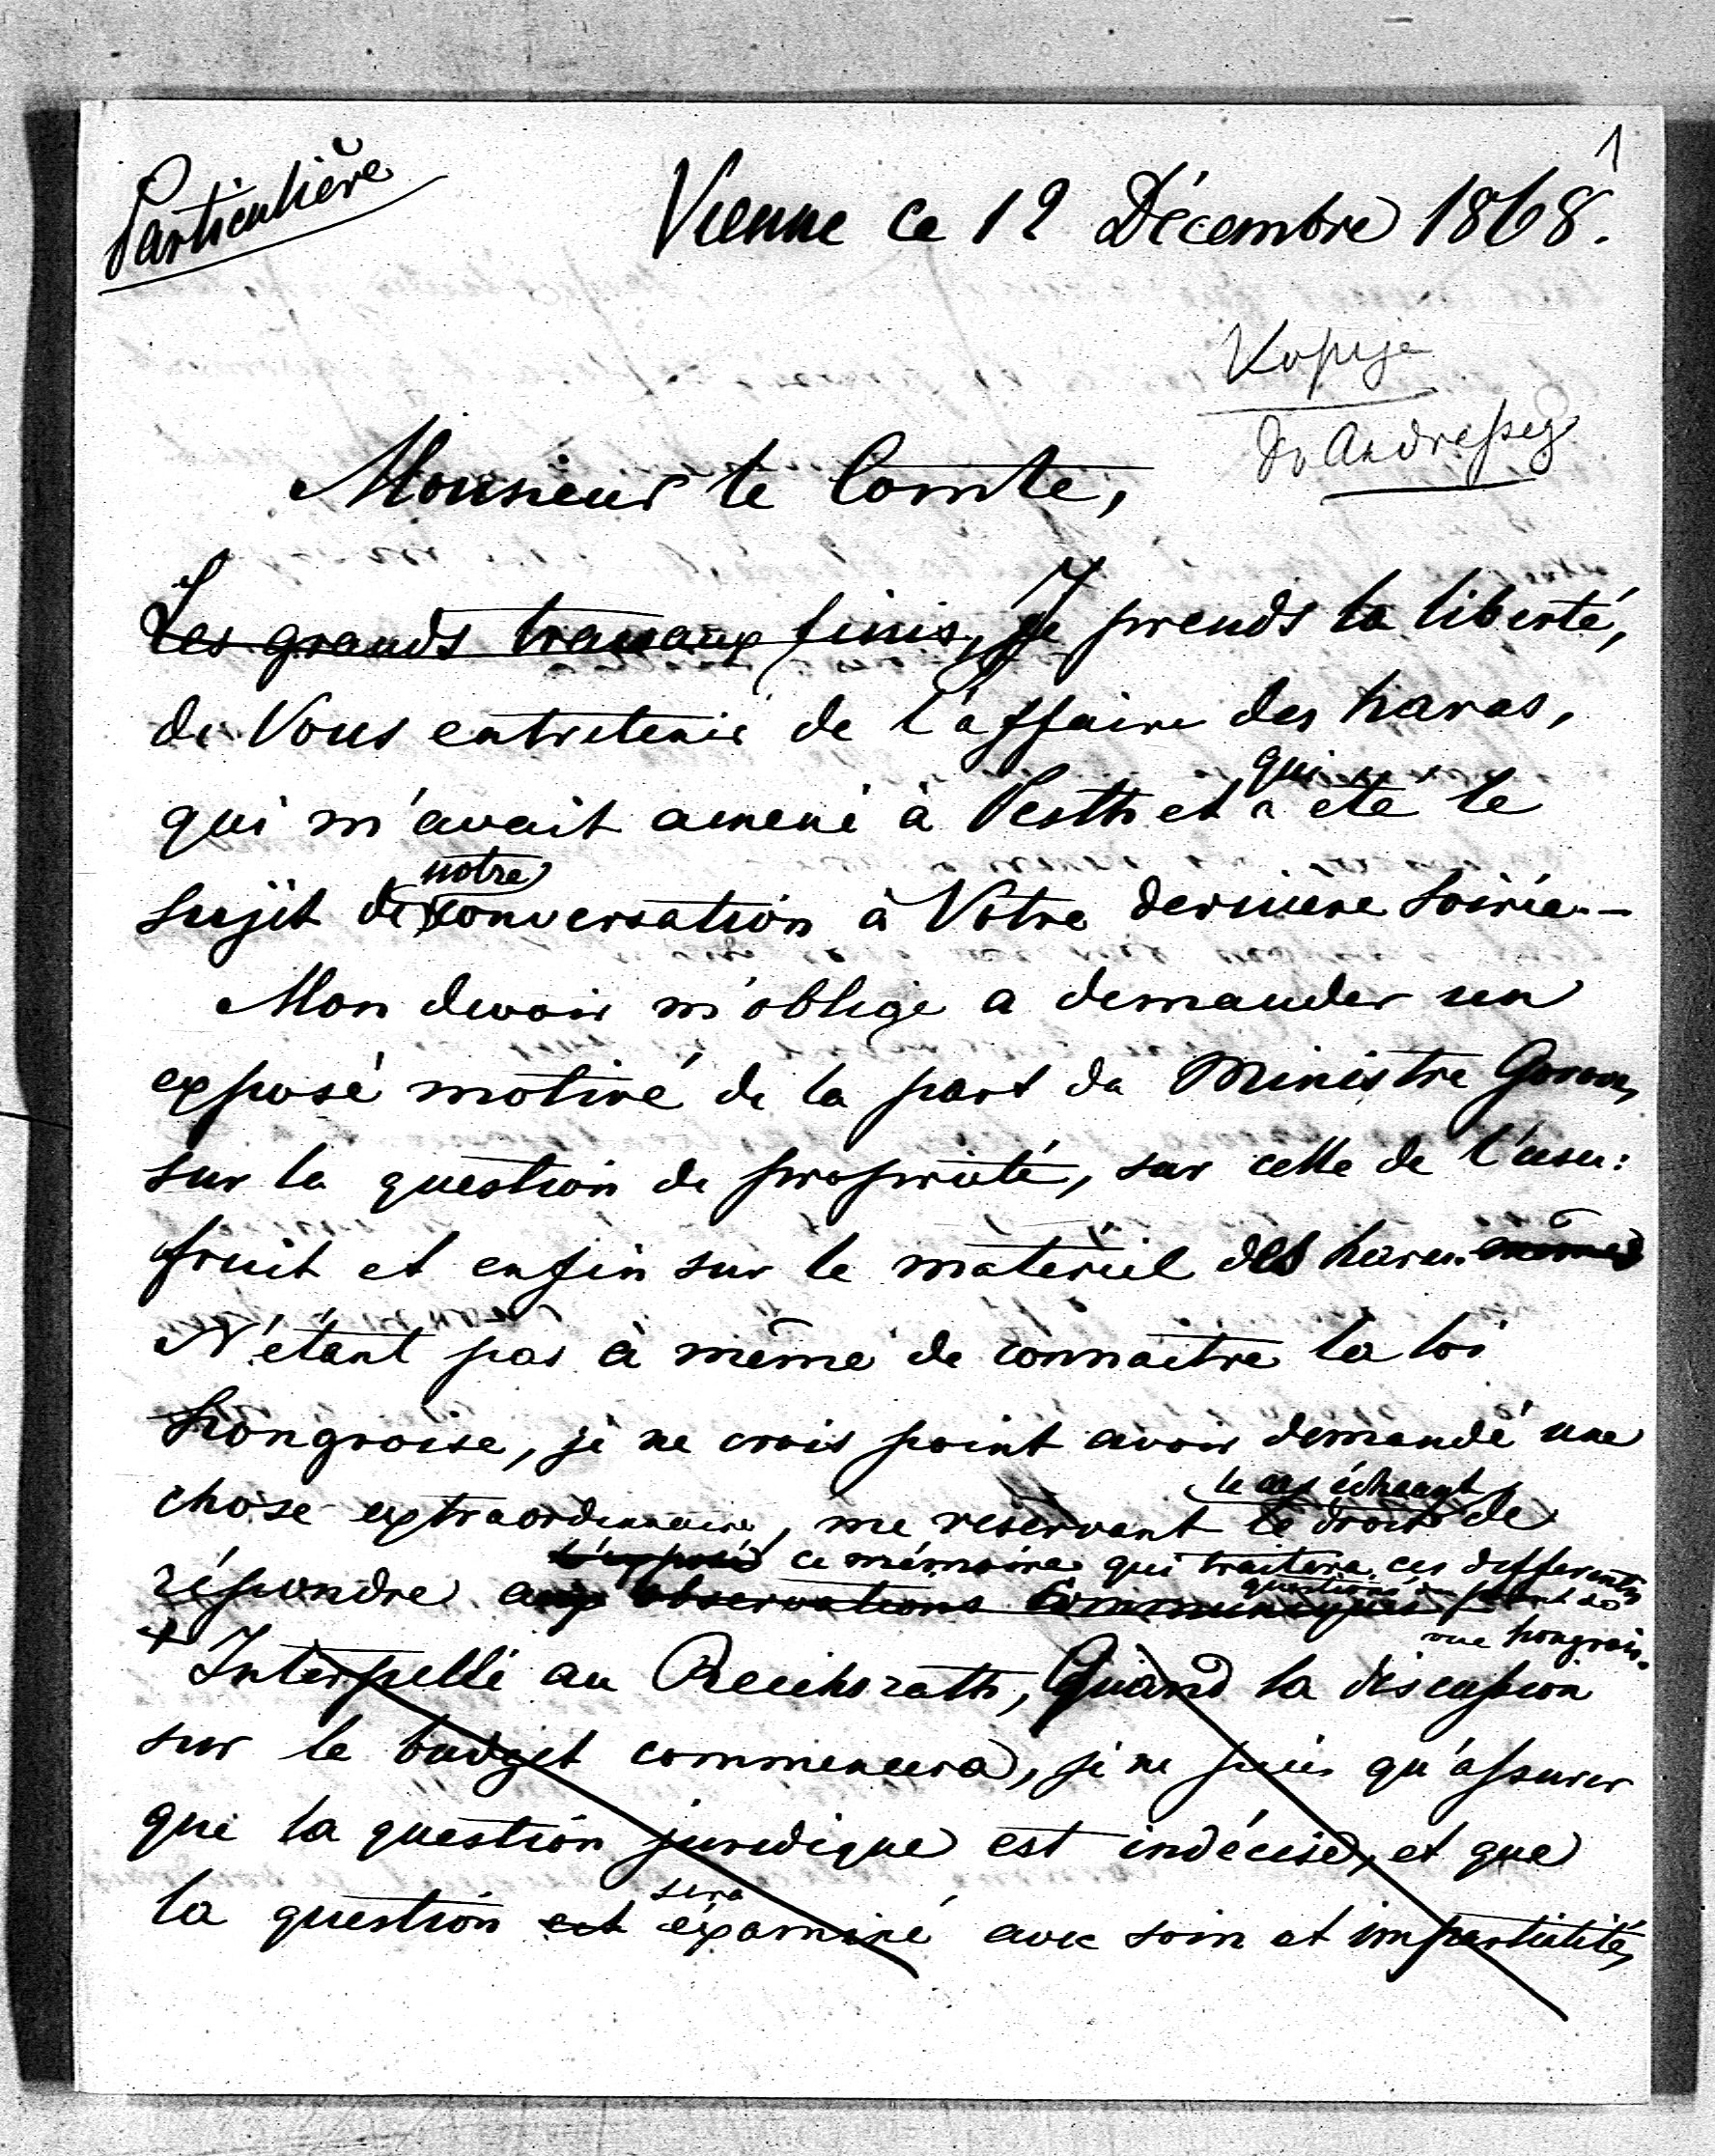 1
Particulière
Vienne ce 12 Décembre 1868.
Kopija
do Andrassy
Monsieur le Comte,
Les grands travaux finis, Je prends la liberté,
de Vous entretenir de l'affaire des haras,
qui
qui m'avait amené à Pesth et a été le
notre
sujet de conversation à Votre dernière soirée.-
Mon devoir m'oblige a demander un
exposé motivé de la part du Ministre Gorove,
sur la question de propriété, sur celle de l'usu:
fruit et enfin sur le materiel des haras mêmes
N'étant pas à même de connaitre la loi
hongroise, je ne crois point avoir demandé une
le cas échéant
chose extraordinaire, me réservant le droit de
l'exposé ce mémoire qui traitera ces differentes
questions point de
répondre aux observations communiquées
vue hongrois.
+ Interpellé au Reichsrath, Quand la discussion
sur le budget commencera, je ne puis qu'assurer
que la question juridique est indécise, et que
sera
la question est examiné avec soin et impartialité,